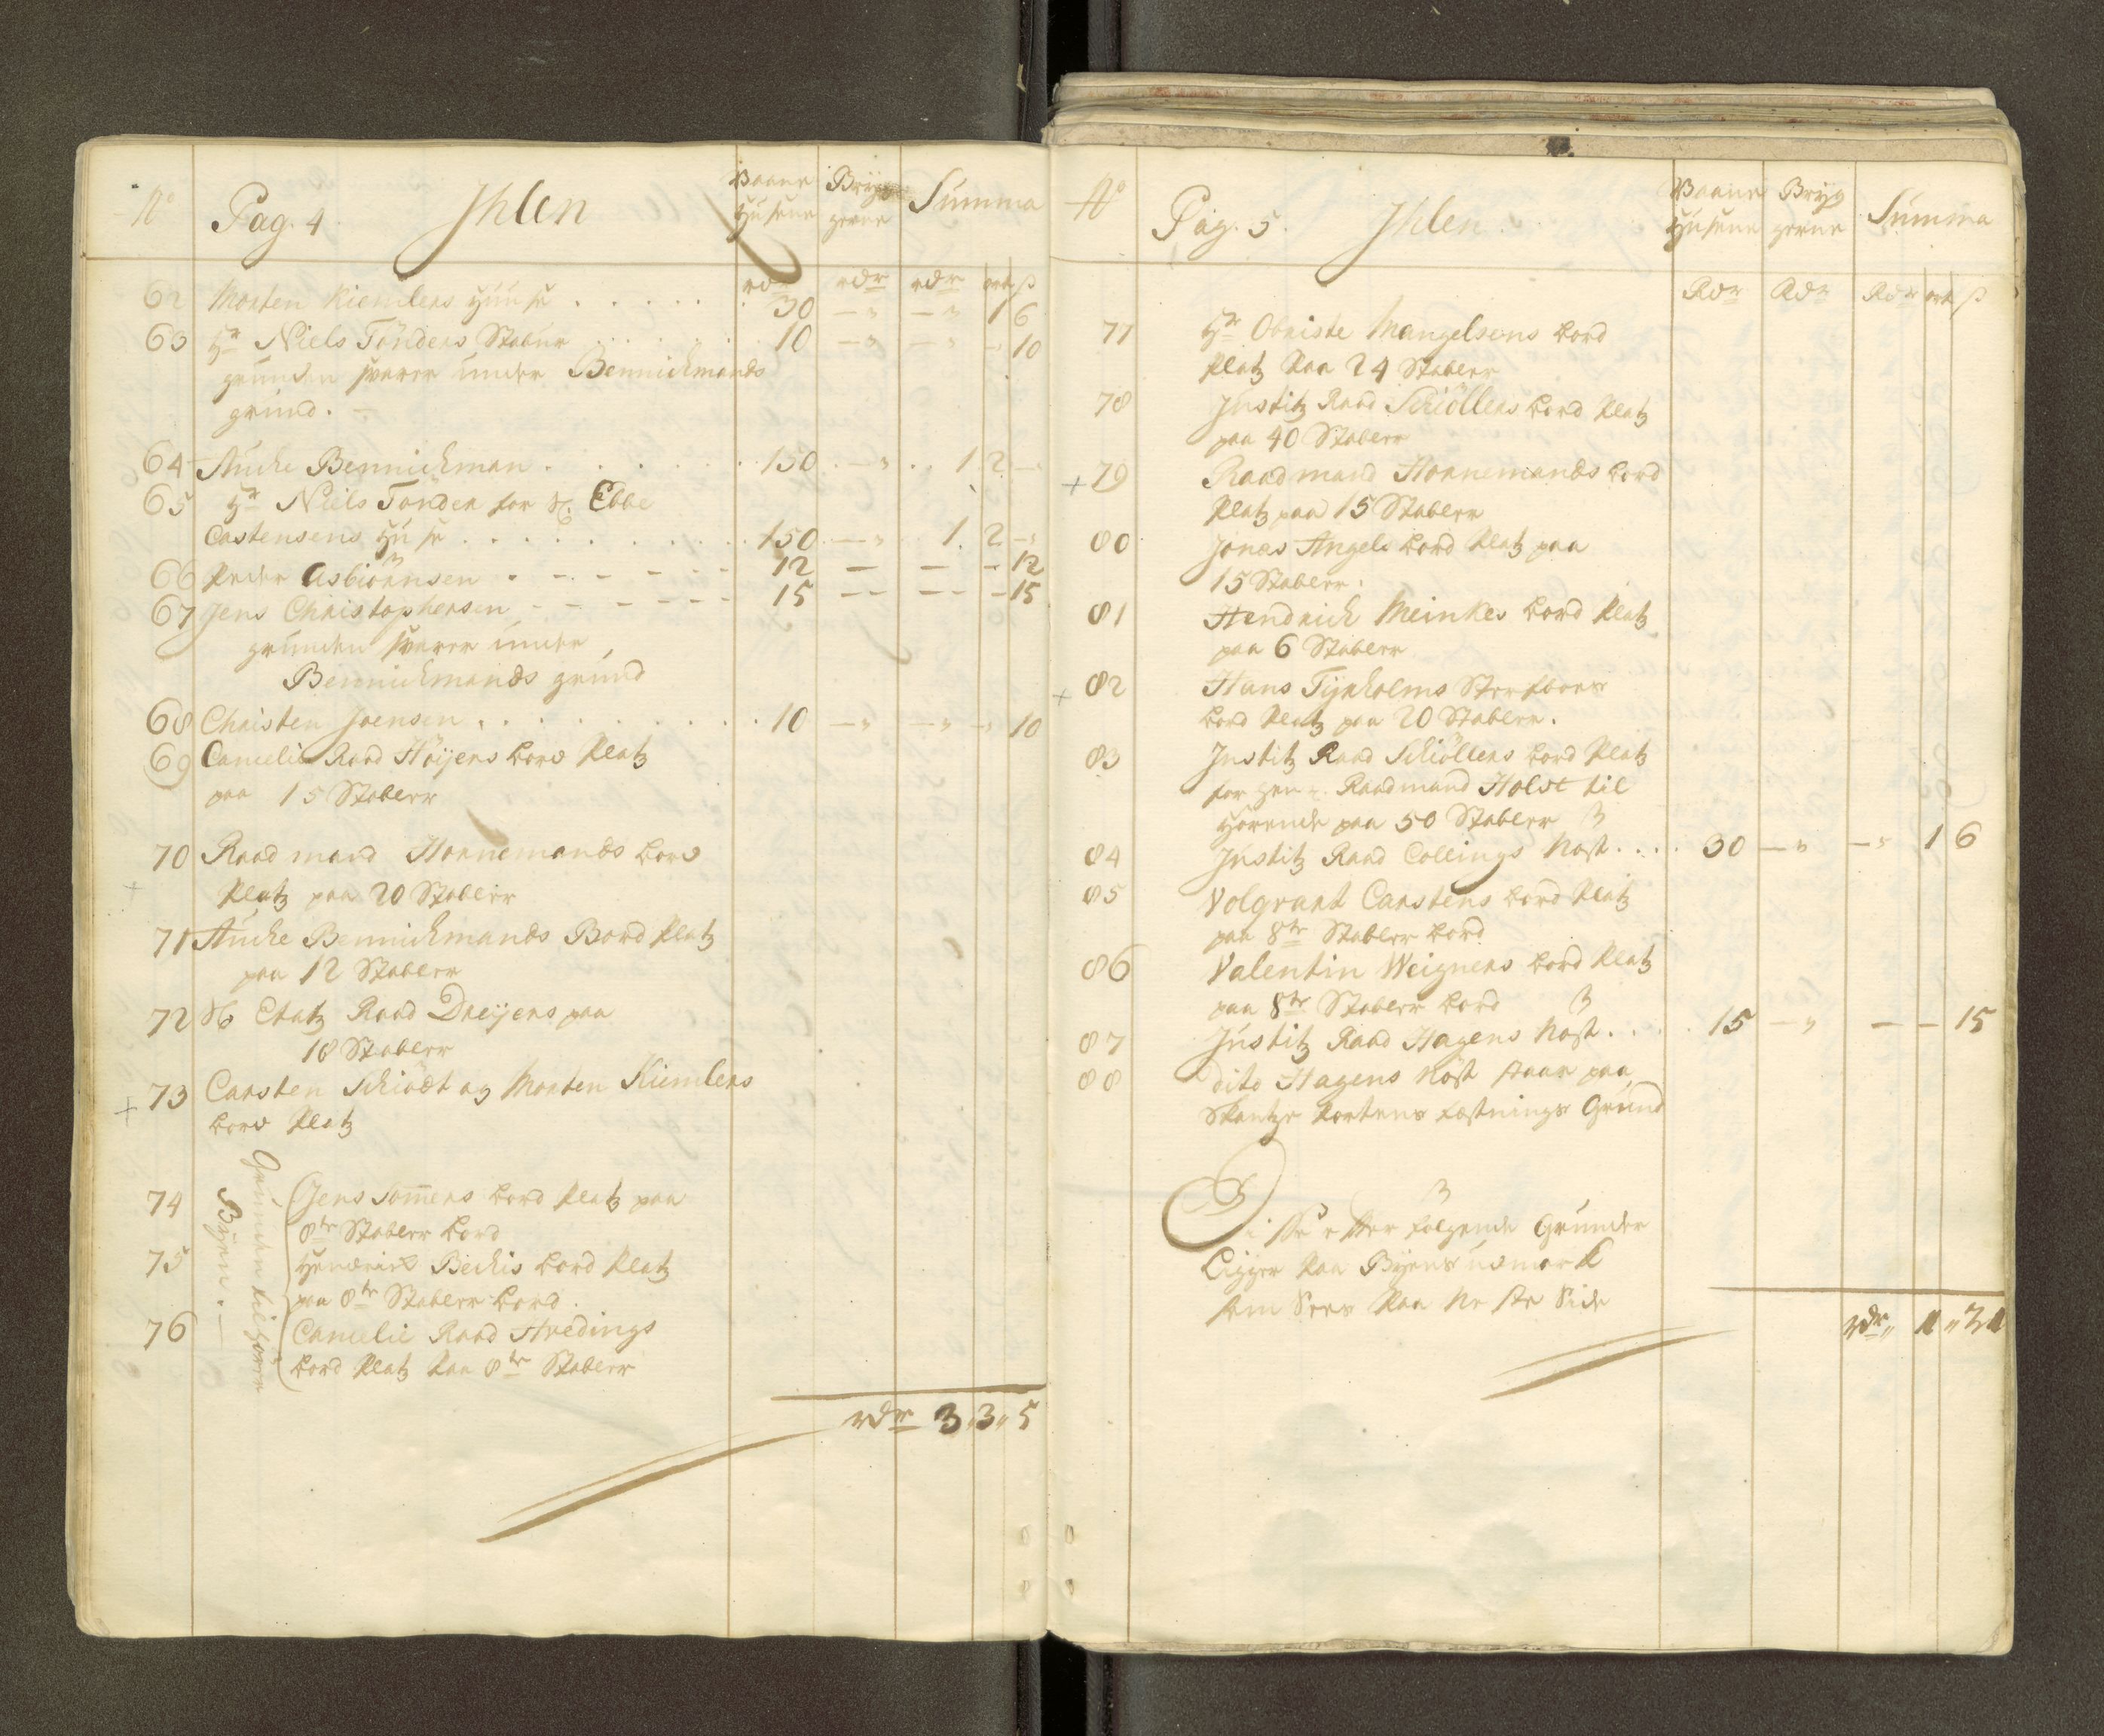 No Pag. 4. Ihlen Vaane Husene Bryg gerne Summa
rdr rdr rdr ort ß
62 Morten Kiemlers Huuse . . . . . 30 — " — " 1 6
63 Hr Niels Tönders Stabur . . . . . 10 — " — " — " 10
grunden svarer under Bennichmands
grund. —
64 Anche Bennichman . . . . . 150 — " 1 2 —
65 Hr Niels Tönder for Sl. Ebbe
Castensens Huse . . . . . 150 — " 1. 2 — "
66 Peder Asbiörnsen . - - - - - 12 — — — 12
67 Jens Christophersen - - - - - - 15 — — — 15
grunden svarer under
Bennichmands grund
68 Christen Joensen . . . . . 10 — " — " — " 10
69 Cancelie Raad Höijers bord Platz
paa 15 Stabler
70 Raadmand Hornemands bord
+ Platz paa 20 Stabler
71 Anche Bennichmands Bord Platz
paa 12 Stabler
72 Sl Etatz Raad Dreijers paa
18 Stabler
+ 73 Carsten Schiödt og Morten Kiemlers
bord Platz
Grunden tilhörer
Byen. —
74 Jens Somers bord Platz paa
8te Stabler bord
75 Hendrick Bechis bord Platz
paa 8te Stabler bord.
76 Cancelie Raad Hvedings
bord Platz paa 8te Stabler
rdr 3 " 3 " 5
No Pag. 5. Ihlen. Vaane Husene Bryg gerne Summa
Rdr Rdr Rdr ort ß
77 Hr Obriste Mangelsens bord
Platz paa 24 Stabler
78 Justitz Raad Schiöllers bord Platz
paa 40 Stabler
+ 79 Raadmand Hornemands bord
Platz paa 15 Stabler
80 Jonas Angels bord Platz paa
15 Stabler.
81 Hendrich Meinkes bord Platz
paa 6 Stabler
+ 82 Hans Tyrholms Sterfboes
bord Platz paa 20 Stabler.
83 Justitz Raad Schiöllers bord Platz
for hen Raadmand Holst til
hörende paa 50 Stabler
84 Justitz Raad Collings Nöst . . . . 30 — " — " 1 6
85 Volqvart Carstens bord Platz
paa 8te Stabler bord
86 Valentin Weigners bord Platz
paa 8te Stabler bord
87 Justitz Raad Hagens Nöst . . . . 15 — " — — 15
88 dito Hagens Nöst staar paa
Skantze Portens Fæstnings Grund
Disse efter fölgende Grunder
Ligger paa Byens udmark
som Sees paa Neste Side
rdr " 1 " 21